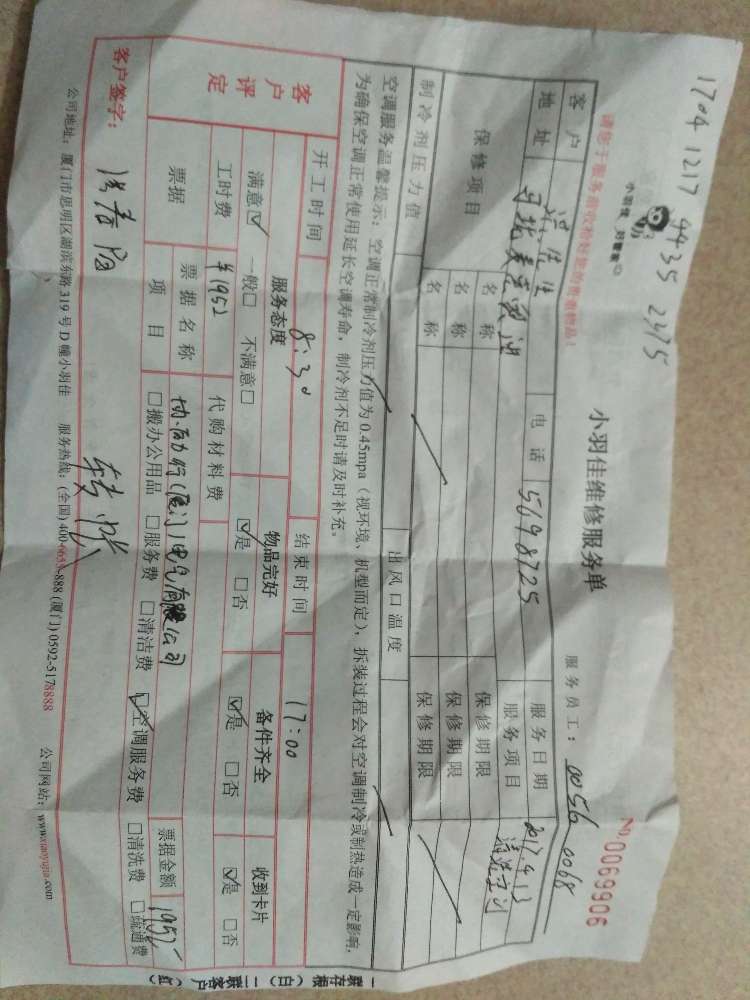 1704 1217 9435 2475
小羽佳 好管家
小羽佳维修服务单
No.0069906
请您于服务前收拾好您的贵重物品!
服务员工: 0056 0068
客户 洪先生 电话 5698725 服务日期 2017.4.13
地址 服务项目 清洗空调
保修项目 名称 保修期限
名称 保修期限
名称 保修期限
制冷剂压力值 出风口温度
空调服务温馨提示: 空调正常制冷剂压力值为0.45mpa (视环境、机型而定), 拆装过程会对空调制冷或制热造成一定影响,
为确保空调正常使用延长空调寿命, 制冷剂不足时请及时补充。
开工时间 8:30 结束时间 17:00
客户评定 服务态度 物品完好 备件齐全 收到卡片
满意☑ 一般□ 不满意□ ☑是 □否 ☑是 □否 ☑是 □否
工时费 ¥1952 代购材料费
票据 票据名称 (厦门)电气有限公司 票据金额 1952
项目 □搬办公用品 □服务费 □清洁费 ☑空调服务费 □清洗费 □疏通费
客户签字: 转帐
公司地址: 厦门市思明区湖滨东路319号D幢小羽佳 服务热线: (全国) 400-6655-888 (厦门) 0592-5178888 公司网站: www.xiaoyujia.com
一联存根 (白) 二联客户 (红)